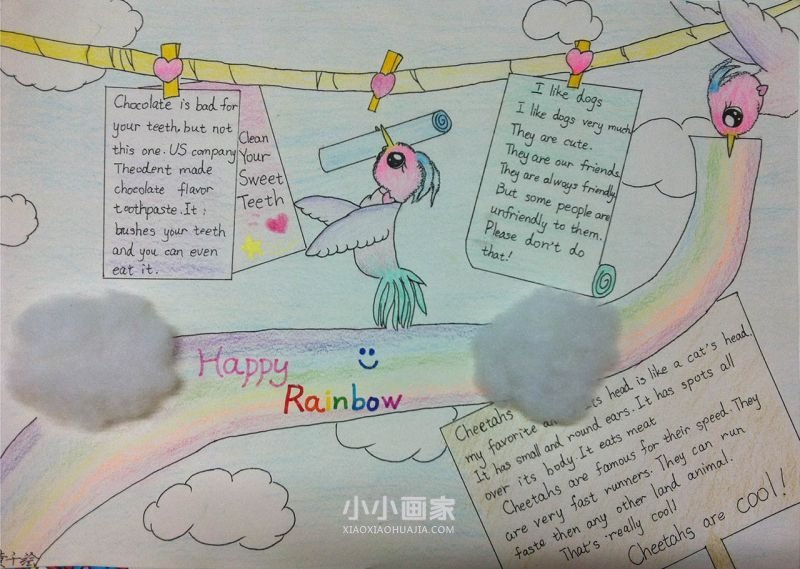 Chocolate is bad for
your teeth, but not
this one. US company
Theodent made
chocolate flavor
toothpaste. It :
bushes your teeth
and you can even
eat it.
Clean
Your
Sweet
Teeth
I like dogs
I like dogs very much
They are cute.
They are our friends.
They are always friendly.
But some people are
unfriendly to them.
Please don't do
that!
Happy
Rainbow
Cheetahs head is like a cat's head.
my favorite
It has small and round ears. It has spots all
over its body. It eats meat
Cheetahs are famous for their speed. They
are very fast runners. They can run
faste then any other land animal.
That's really cool!
Cheetahs are cool!
小小画家
XIAOXIAOHUAJIA.COM